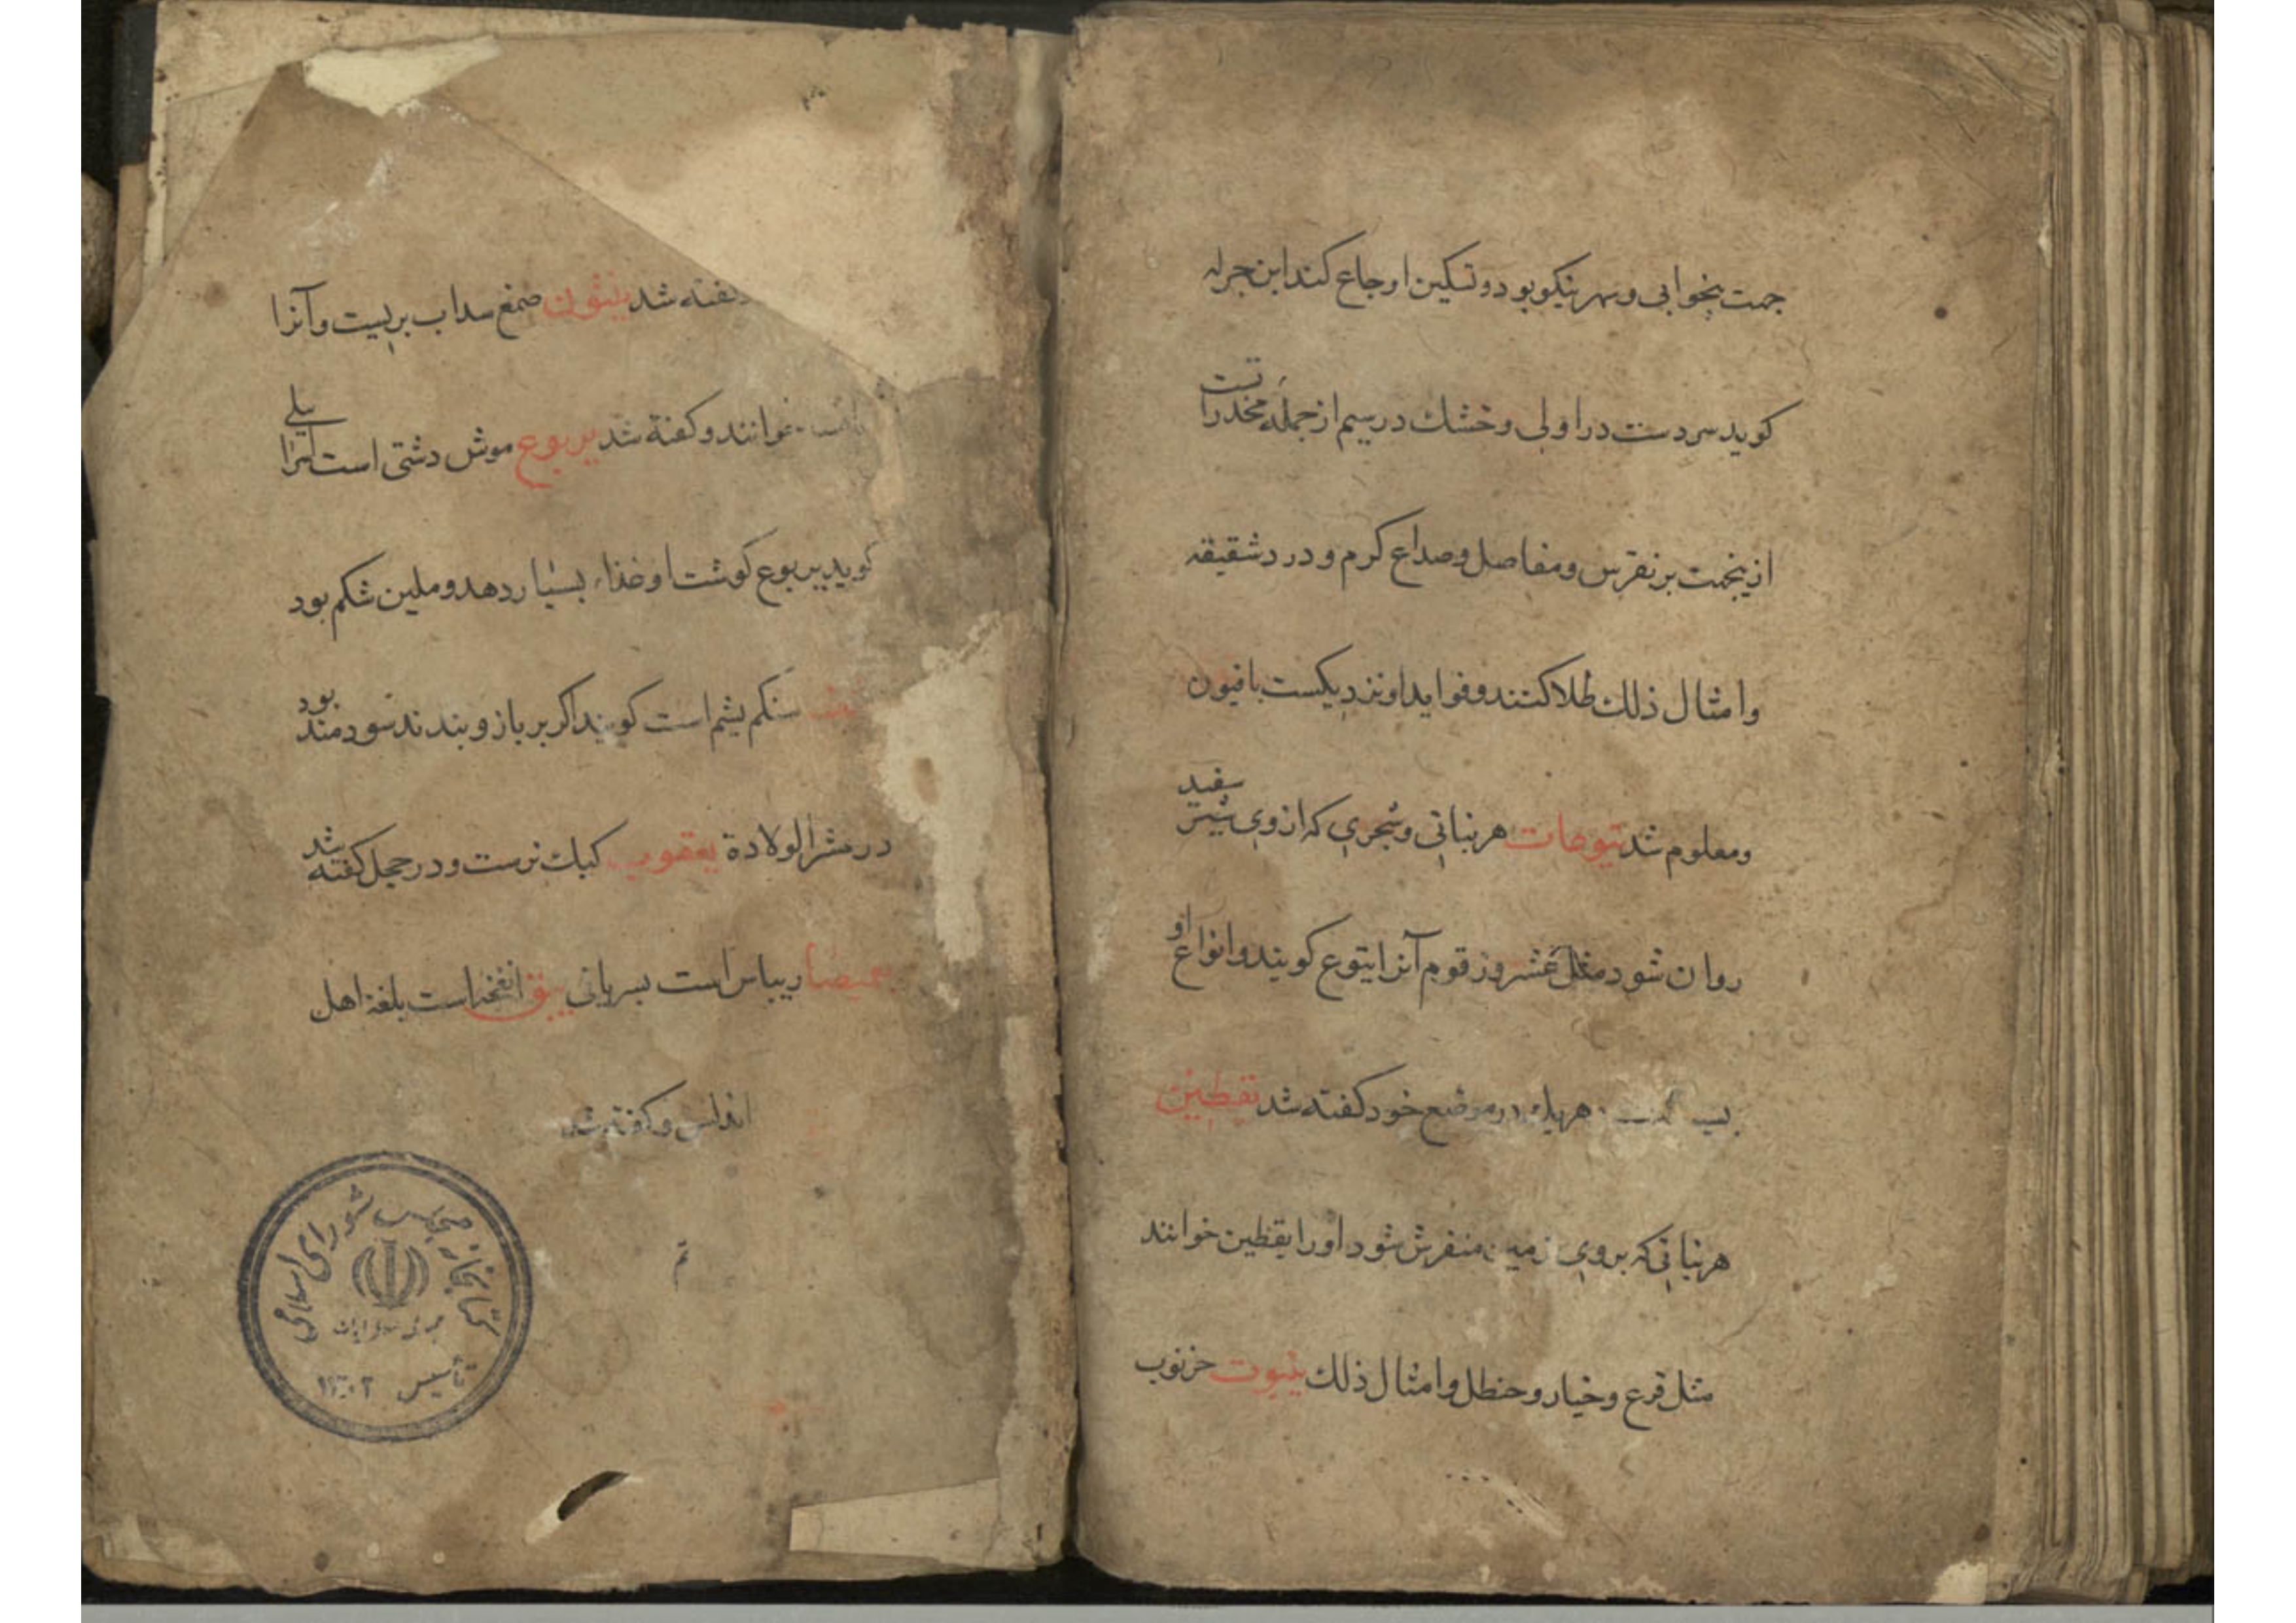 جهت بیخوابی و سهر نیکو بود و تسکین اوجاع کند ابن جزله
کوید سردست در اولی و خشك در سیم از جمله مخدراتست
ازینجهت بر نقرس و مفاصل و صداع کرم و درد شقیقه
و امثال ذلك طلا کنند و فواید او نزدیکست بافیون
و معلوم شد یتوعات هر نباتی و شجری که از وی شیر سفید
روان شود مثل عشر و زقوم آنرا یتوع کویند و انواع او
هریك در موضع خود کفته شد یقطین
هر نباتی که بر روی زمین منفرش شود او را یقطین خوانند
مثل قرع و خیار و حنظل و امثال ذلك ینبوت خرنوب
کفته شد ینتون صمغ سداب بریست و آنرا
خوانند و کفته شد یربوع موش دشتی است
کوید یربوع کوشت او غذاء بسیار دهد و ملین شکم بود
سنك یشم است کویند اکر بر بازو بندند سودمند بود
در عشر الولادة یعقوب کبك نرست و در حجل کفته شد
ریباس است بسریانی ینق انفخه است بلغة اهل
اندلس و کفته شد
تم
کتابخانه مجلس شورای اسلامی
جمهوری اسلامی ایران
تأسیس ۱۳۰۲